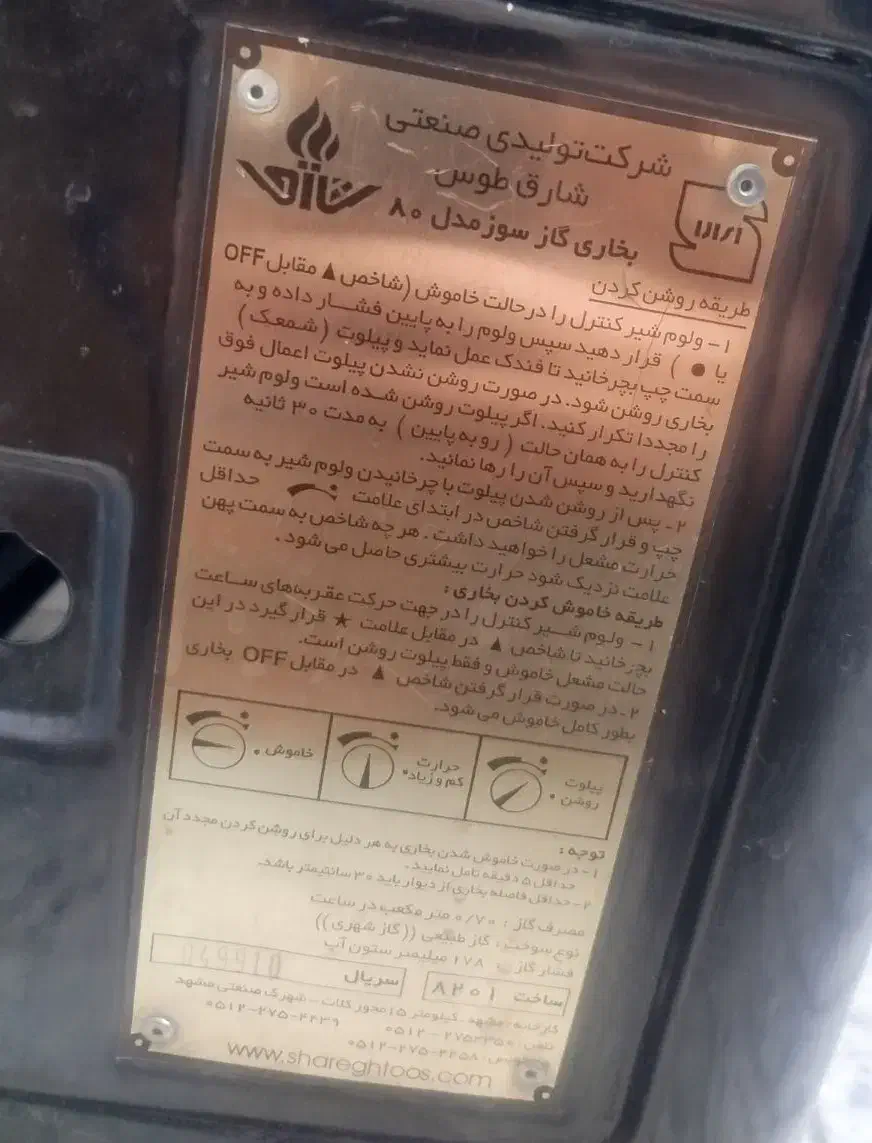 شرکت تولیدی صنعتی
شارق طوس
بخاری گاز سوز مدل ۸۰
طریقه روشن کردن
۱ - ولوم شیر کنترل را در حالت خاموش (شاخص ▲ مقابل OFF
یا ● ) قرار دهید سپس ولوم را به پایین فشار داده و به
سمت چپ بچرخانید تا فندک عمل نماید و پیلوت (شمعک)
بخاری روشن شود. در صورت روشن نشدن پیلوت اعمال فوق
را مجددا تکرار کنید. اگر پیلوت روشن شده است ولوم شیر
کنترل را به همان حالت ( رو به پایین ) به مدت ۳۰ ثانیه
نگهدارید و سپس آن را رها نمائید.
۲ - پس از روشن شدن پیلوت با چرخانیدن ولوم شیر به سمت
چپ و قرار گرفتن شاخص در ابتدای علامت حداقل
حرارت مشعل را خواهید داشت . هر چه شاخص به سمت پهن
علامت نزدیک شود حرارت بیشتری حاصل می شود .
طریقه خاموش کردن بخاری :
۱ - ولوم شیر کنترل را در جهت حرکت عقربه‌های ساعت
بچرخانید تا شاخص ▲ در مقابل علامت ★ قرار گیرد در این
حالت مشعل خاموش و فقط پیلوت روشن است.
۲ - در صورت قرار گرفتن شاخص ▲ در مقابل OFF بخاری
بطور کامل خاموش می شود.
پیلوت روشن •
حرارت کم و زیاد •
خاموش •
توجه :
۱ - در صورت خاموش شدن بخاری به هر دلیل برای روشن کردن مجدد آن
حداقل ۵ دقیقه تامل نمایید .
۲ - حداقل فاصله بخاری از دیوار باید ۳۰ سانتیمتر باشد.
مصرف گاز : ۰/۷۰ متر مکعب در ساعت
نوع سوخت : گاز طبیعی ((گاز شهری))
فشار گاز : ۱۷۸ میلیمتر ستون آب
ساخت ۸۲۰۱
سریال
کارخانه : مشهد - کیلومتر ۱۵ محور کلات - شهرک صنعتی مشهد
تلفن : ۰۵۱۲-۲۷۵۲۳۵۰ ۰۵۱۲-۲۷۵-۴۴۳۹
۰۵۱۲-۲۷۵-۴۴۵۸
www.shareghtoos.com